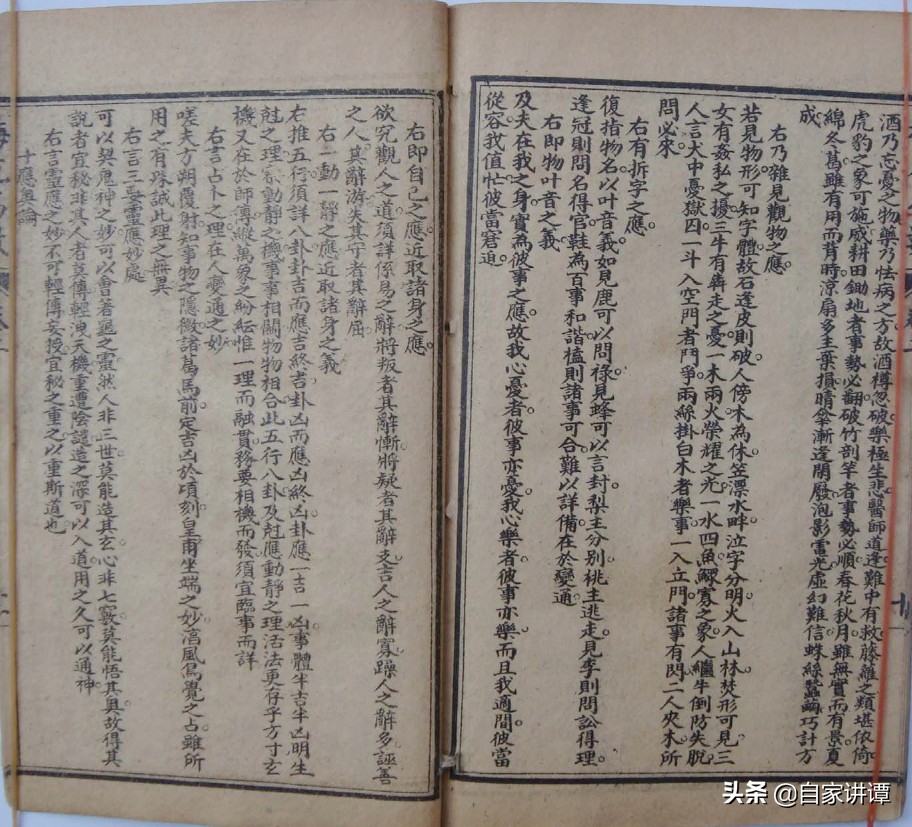 酒乃忘憂之物藥乃怯病之方故酒樽忽破樂極生悲醫師道逢難中有救藤蘿之類堪依倚
虎豹之象可施威耕田鋤地者事勢必翻破竹剖竿者事勢必順春花秋月雖無實而有景夏
綿冬葛雖有用而背時涼扇多主棄損晴傘漸逢閒廢泡影電光虛幻難信蛛絲蠶繭巧計方
成
右乃雜見觀物之應
若見物形可知字體故石逢皮則破人傍木為休笠漂水畔泣字分明火入山林焚形可見三
女有姦私之擾三牛有犇走之憂一木兩火榮耀之光一水四魚鰥寡之象人繼牛倒防失脫
人言犬中憂獄囚一斗入空門者鬥爭兩絲掛白木者樂事一入立門諸事有閃二人夾木所
問必來
右有拆字之應
復指物名以叶音義如見鹿可以問祿見蜂可以言封梨主分別桃主逃走見李則問訟得理
逢冠則問名得官鞋為百事和諧榼則諸事可合難以詳備在於變通
右即物叶音之義
及夫在我之身實為彼事之應故我心憂者彼事亦憂我心樂者彼事亦樂而且我適間彼當
從容我值忙彼當窘迫
右即自己之應近取諸身之應
欲究觀人之道須詳係易之辭將叛者其辭慚將疑者其辭支吉人之辭寡躁人之辭多誣善
之人其辭游失其守者其辭屈
右一動一靜之應近取諸身之義
右推五行須詳八卦卦吉而應吉終吉卦凶而應凶終凶卦應一吉一凶事體半吉半凶明生
尅之理察動靜之機事事相關物物相合此五行八卦及尅應動靜之理活法更存乎方寸玄
機又在於師傳縱萬象之紛紜惟一理而融貫務要相機而發須宜臨事而詳
右言占卜之理在人變通之妙
嗟夫方朔覆射知事物之隱微諸葛馬前定吉凶於頃刻皇甫坐端之妙滈風鳥覺之占雖所
用之有殊誠此理之無異
右言三要靈應妙處
可以契鬼神之妙可以會蓍龜之靈然人非三世莫能造其玄心非七竅莫能悟其奧故得其
說者宜秘非其人者莫傳輕洩天機重遭陰譴造之深可以入道用之久可以通神
右言靈應之妙不可輕傳妄授宜秘之重之以重斯道也
十應奧論
头条 @自家讲谭